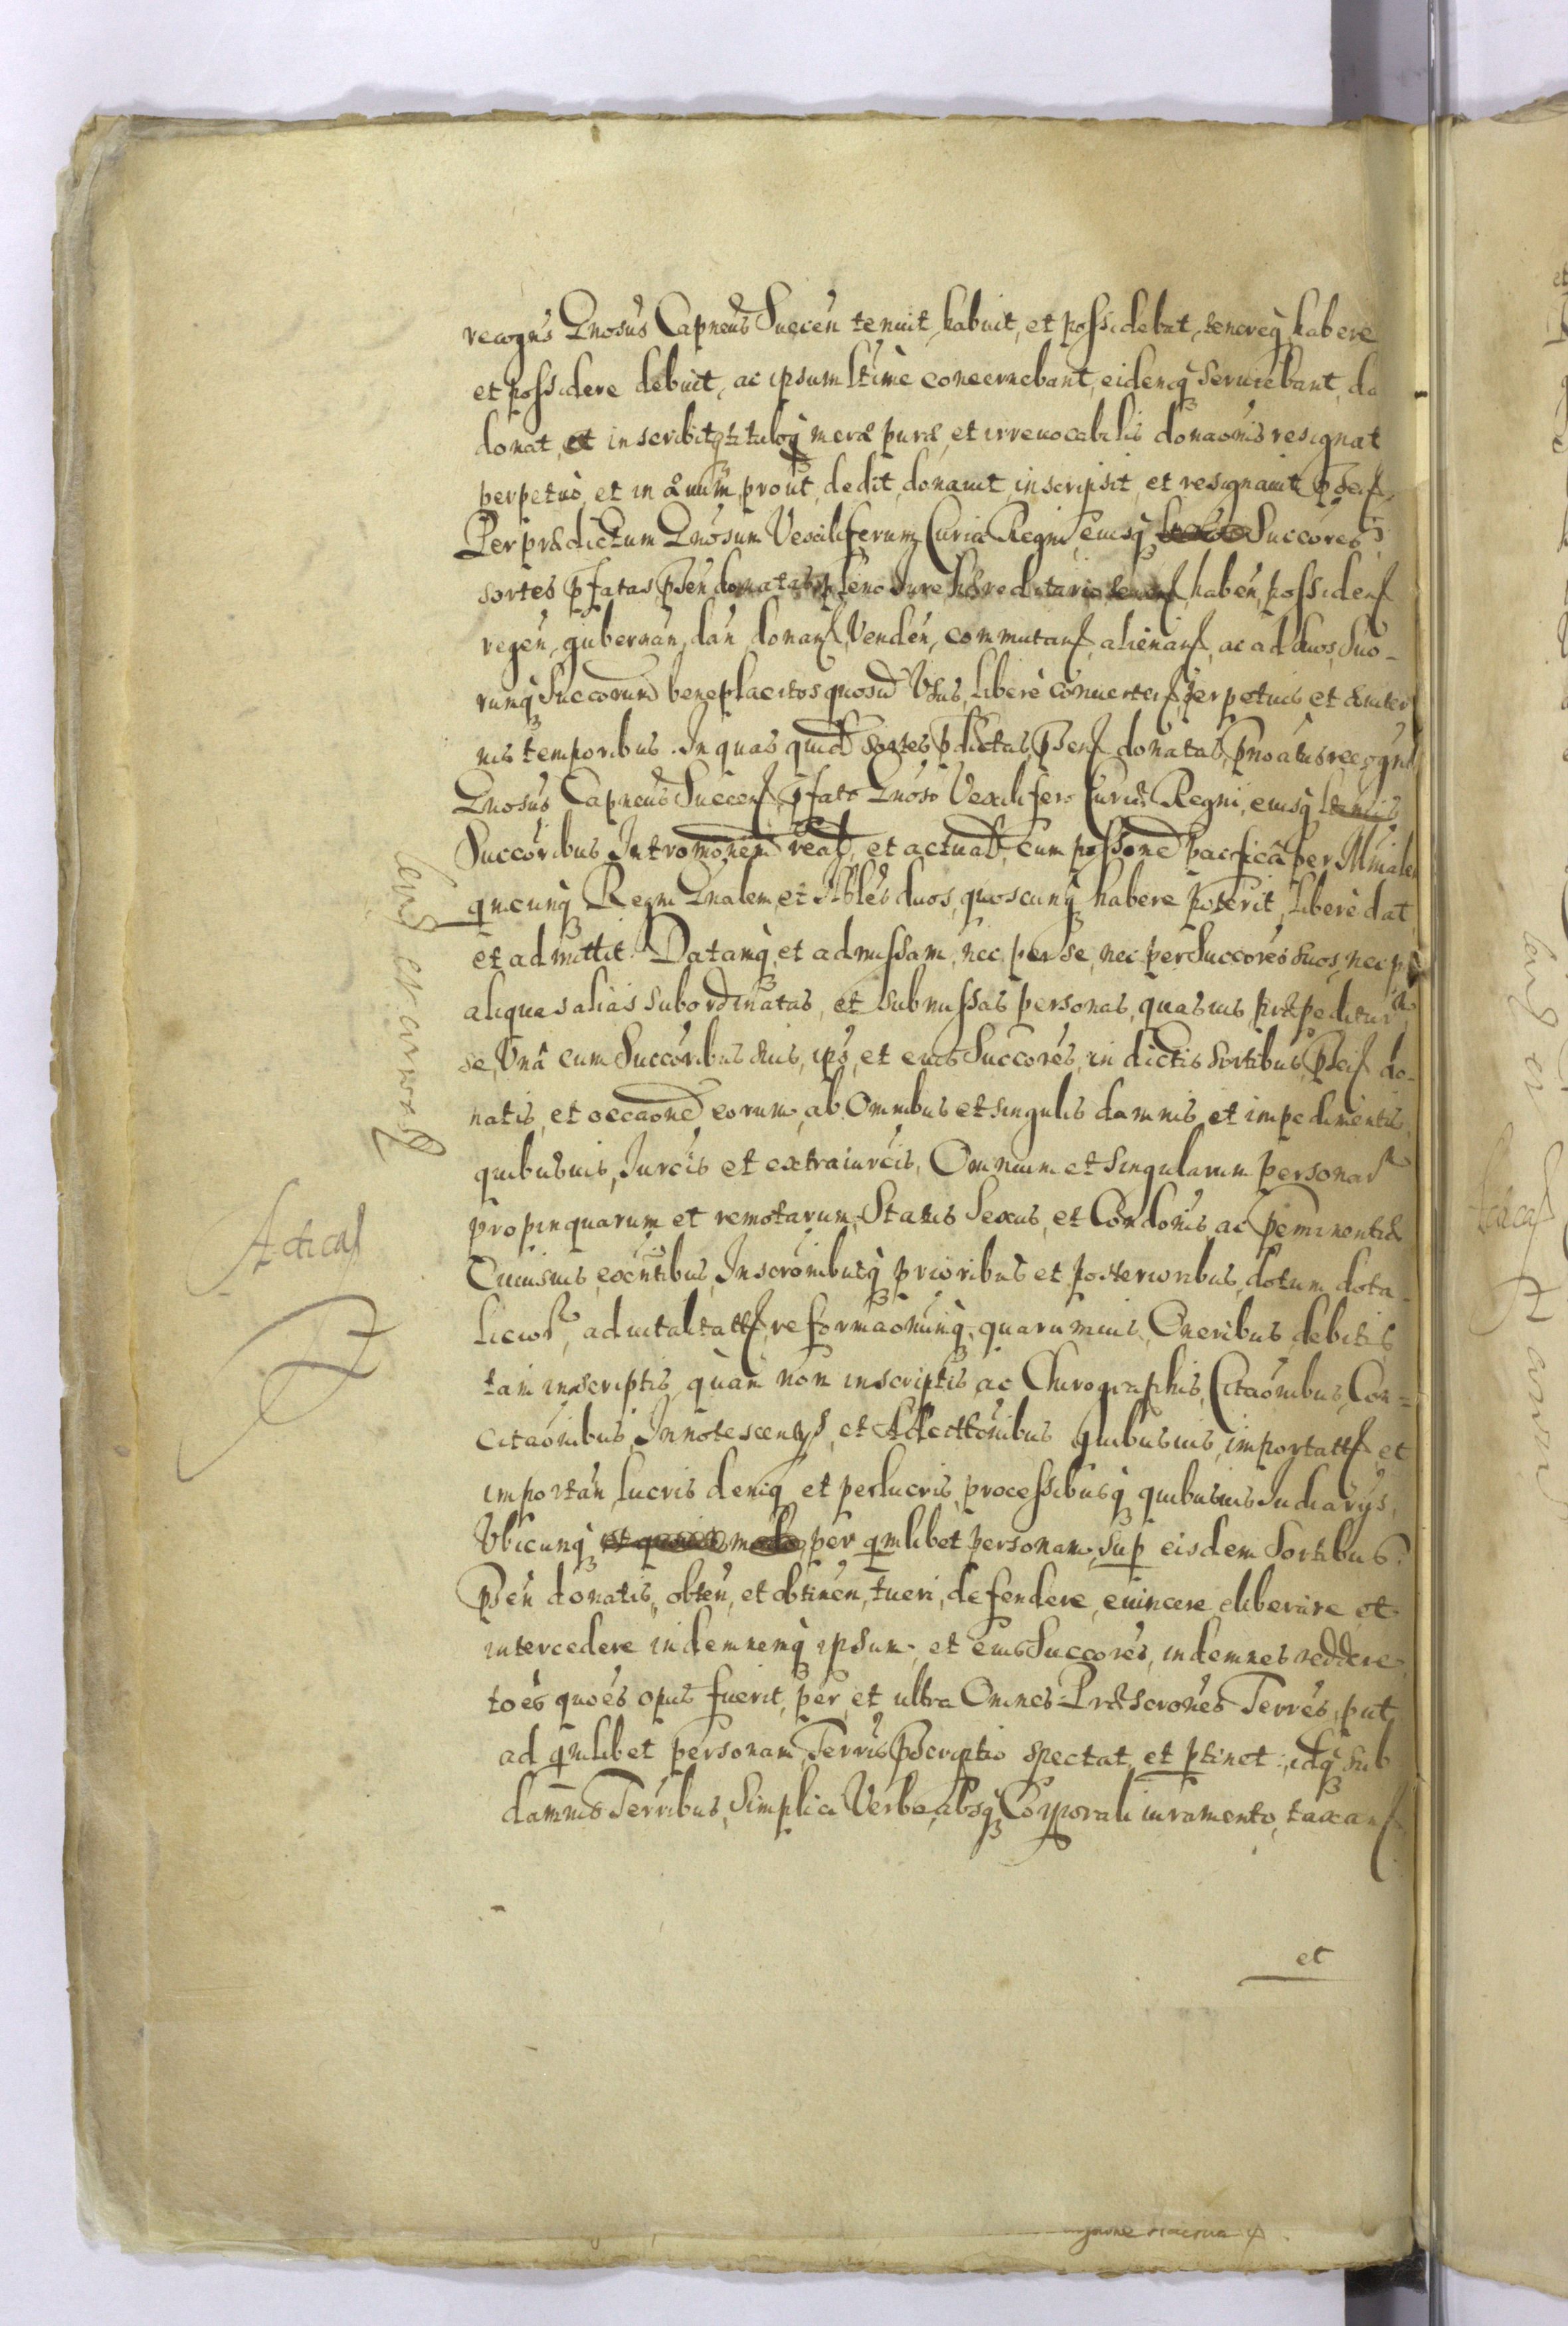 recogns Gnosus Capneus Succen tenuit, habuit, et possidebat, tenereq habere
et possidere debuit, ac ipsum ltime concernebant, eidemq seruiebant, da
donat, et inscribit, tituloq meræ puræ, et irreuocabilis donaonis resignat
perpetuo, et in æuum, prout, dedit, donauit, inscripsit, et resignauit
Per prædictum Gnosum Vexiliferum Curiæ Regni, eiusq Succores
sortes pfatas psen donatas pleno Jure hæreditario haben, possiden
regen, gubernan, dan, donan, Venden, commutan, alienan, ac ad suos, suo-
rumq Succorum beneplacitos quosd Vsus, libere conuerten, perpetuis et æuiter
nis temporibus. In quas quid sortes pdictas, psen donatas, pnoatus recogns
Gnosus Capneus Succen, pfato Gnoso Vexilifero Curiæ Regni, eiusq
Succoribus Intromonem real, et actual, cum possone pacifica per Mniale
qmcunq Regni Gnalem, et Nbles duos, quoscunq habere poterit, libere dat
et admittit. Datamq, et admissam, nec per se, nec per Succores suos, nec p
aliquas alias subordinatas, et submissas personas, quasuis præpeditur
se, Vna cum Succoribus suis, ips, et eius Succores, in dictis sortibus, psen do-
natis, et occaone eorum, ab Omnibus et singulis damnis, et impedimentis,
quibusuis, Jurcis et extraiurcis, Omnium et singularum personar
propinquarum et remotarum, Status Sexus, et Condonis, ac peminentiæ
Cuiusuis, exentibus, Inscronibusq prioribus et posterioribus, dotum, dota-
licior, aduitalitatt, reformaonumq, quarumuis, Oneribus, debitis,
tam inscriptis, quam non inscriptis, ac Chirographis, Citaonibus, Con-
citaonibus, Innotescentys, et Adcittonibus quibusuis, importatt, et
importan, lucris, deniq et perlucris, processibusq quibusuis Judiarys,
Vbicunq per qmlibet personam, sup eisdem sortibus
psen donatis, obten, et obtinen, tueri, defendere, euincere, eliberare et
intercedere indemnemq ipsum, et eius Succores, indemnes reddere,
toes quoes opus fuerit, per, et ultra Omnes Præscrones Terres, put
ad qmlibet personam, Terrius Pscriptio spectat, et ptinet: idq sub
damnis Terribus, Simplici Verbo, absq Corporali iuramento, taxan
et
Acticas